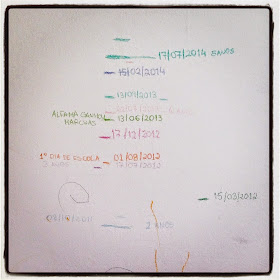 17/07/2014 5 ANOS
15/02/2014
13/09/2013
13/06/2013
17/12/2012
1º DIA DE ESCOLA 01/08/2012
3 ANOS 17/07/2012
15/03/2012
2 ANOS